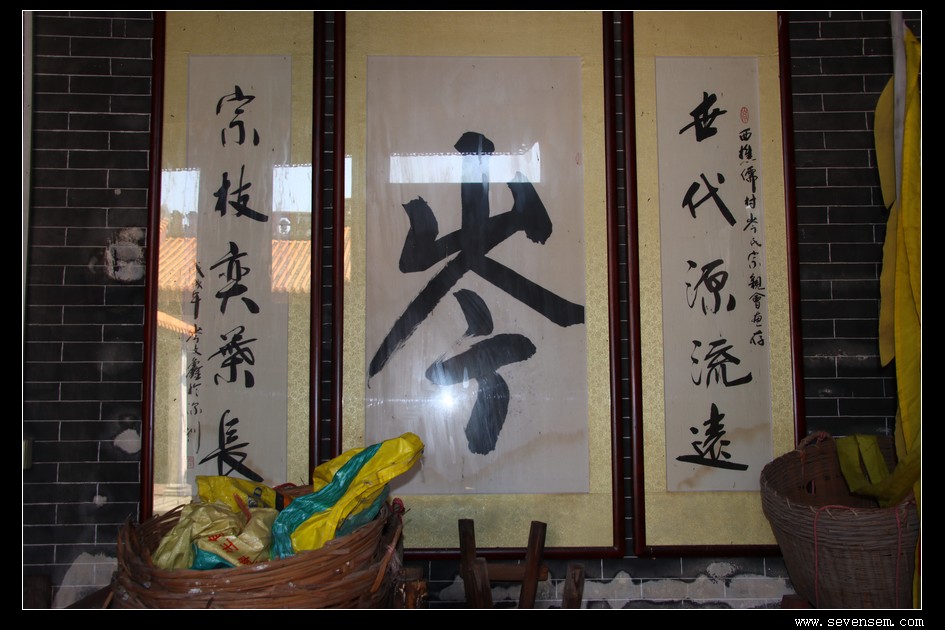 世代源流遠
西樵儒村岑氏宗親會惠存
岑
宗枝奕葉長
www.sevensem.com